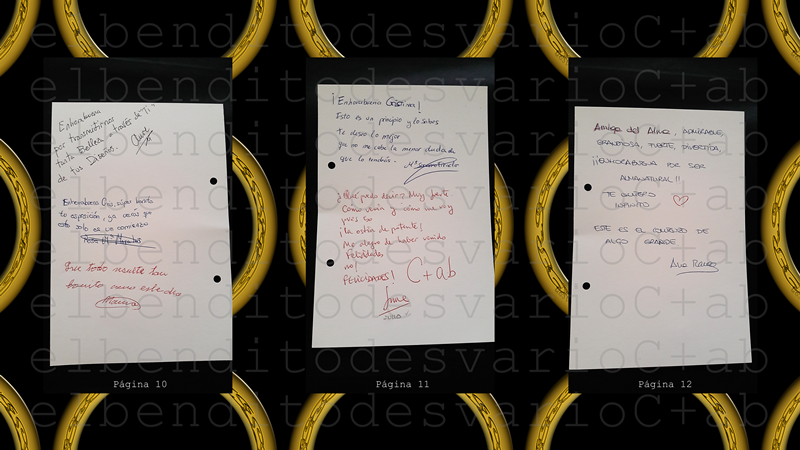 elbenditodesvaríoC+ab
elbenditodesvaríoC+ab
elbenditodesvaríoC+ab
elbenditodesvaríoC+ab
elbenditodesvaríoC+ab
elbenditodesvaríoC+ab
elbenditodesvaríoC+ab
Enhorabuena
por transmitirnos
tanta Belleza a través de Ti
de tus Diseños.
Enhorabuena
tu exposición, ya verás que
esto solo es un comienzo
Que todo resulte tan
bonito como este día
Página 10
¡Enhorabuena Cristina!
Esto es un principio y lo sabes
te deseo lo mejor
ya no me cabe la menor duda de
que lo tendrás.
¿Qué puedo decir? Muy fuerte
Como venía y cómo me voy
pues so
¡La ostia de potente!
Me alegro de haber venido
Felicidades
no!
FELICIDADES! C+ab
Página 11
Amiga del Alma, ADMIRABLE,
GRANDIOSA, FUERTE, DIVERTIDA,
¡¡ENHORABUENA POR SER
ALMANATURAL!!
TE QUIERO
INFINITO
ESTE ES EL COMIENZO DE
ALGO GRANDE
Ana
Página 12